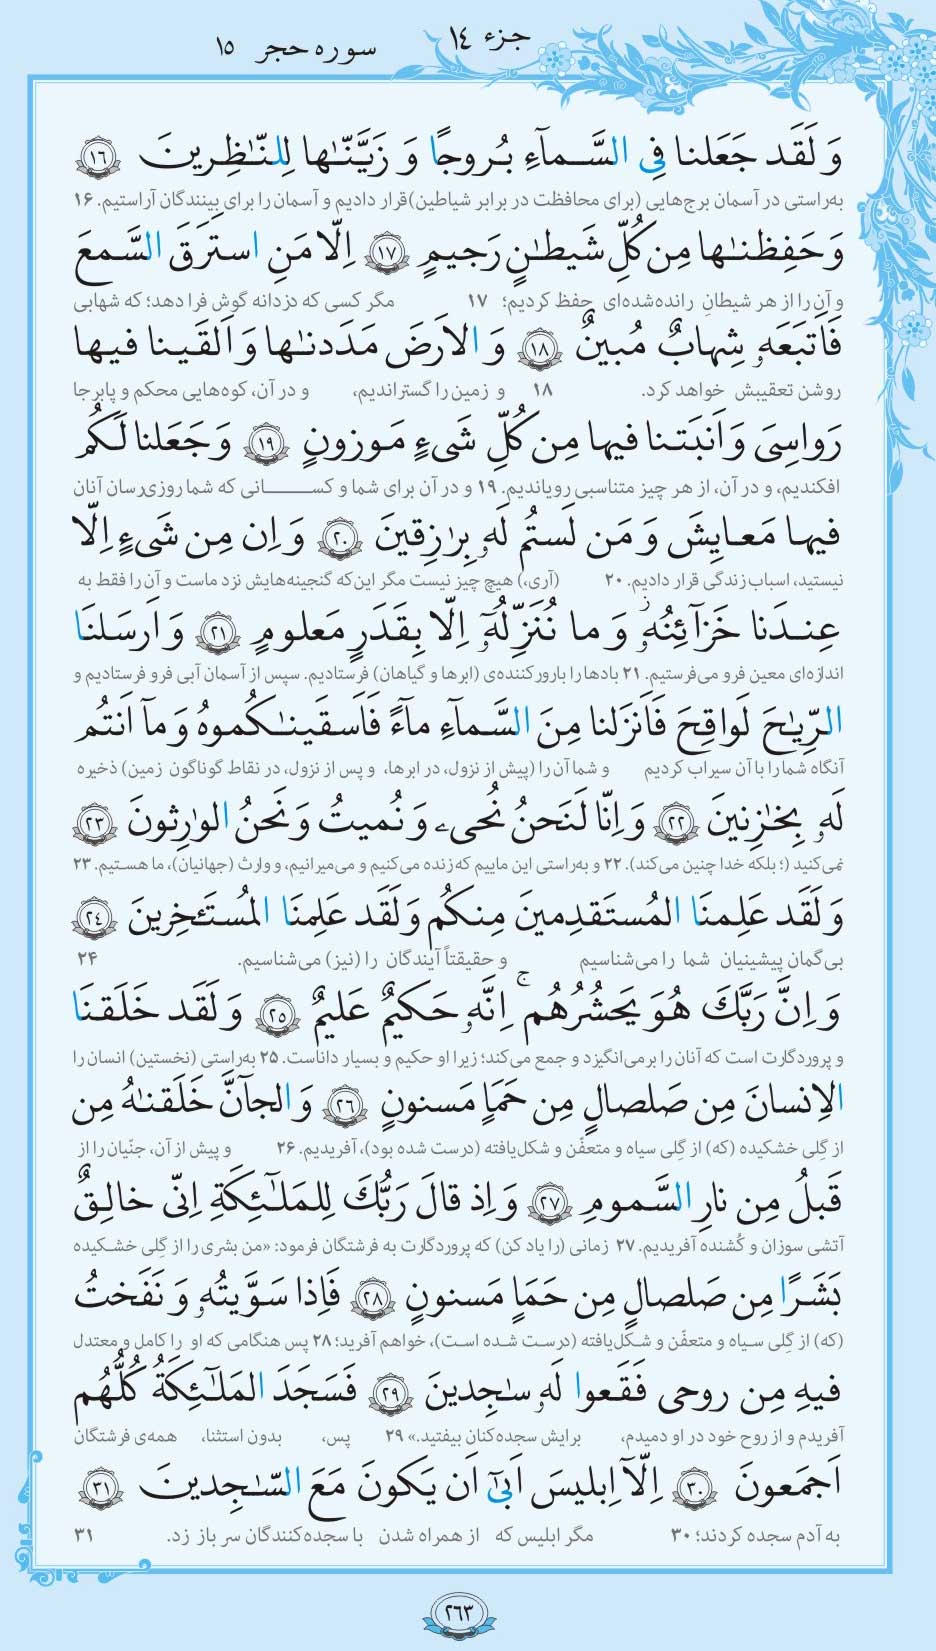 جزء ١٤
سوره حجر ١٥
وَ لَقَد جَعَلنا فِى السَّمآءِ بُروجًا وَ زَيَّنّٰها لِلنّٰظِرينَ ﴿١٦﴾
به‌راستی در آسمان برج‌هایی (برای محافظت در برابر شیاطین) قرار دادیم و آسمان را برای بینندگان آراستیم. ۱۶
وَ حَفِظنٰها مِن كُلِّ شَيطٰنٍ رَجيمٍ ﴿١٧﴾ اِلّا مَنِ استَرَقَ السَّمعَ
و آن را از هر شیطانِ رانده‌شده‌ای حفظ کردیم؛ ۱۷ مگر کسی که دزدانه گوش فرا دهد؛ که شهابی
فَاَتبَعَهۥ شِهابٌ مُبينٌ ﴿١٨﴾ وَ الاَرضَ مَدَدنٰها وَ اَلقَينا فيها
روشن تعقیبش خواهد کرد. ۱۸ و زمین را گستراندیم، و در آن، کوه‌هایی محکم و پابرجا
رَواسِىَ وَ اَنبَتنا فيها مِن كُلِّ شَىءٍ مَوزونٍ ﴿١٩﴾ وَ جَعَلنا لَكُم
افکندیم، و در آن، از هر چیز متناسبی رویاندیم. ۱۹ و در آن برای شما و کسانی که شما روزی‌رسان آنان
فيها مَعايِشَ وَ مَن لَستُم لَهۥ بِرٰزِقينَ ﴿٢٠﴾ وَ اِن مِن شَىءٍ اِلّا
نیستید، اسباب زندگی قرار دادیم. ۲۰ (آری،) هیچ چیز نیست مگر این‌که گنجینه‌هایش نزد ماست و آن را فقط به
عِندَنا خَزآئِنُهۥ ز وَ ما نُنَزِّلُهۥٓ اِلّا بِقَدَرٍ مَعلومٍ ﴿٢١﴾ وَ اَرسَلنَا
اندازه‌ای معین فرو می‌فرستیم. ۲۱ بادها را بارورکننده‌ی (ابرها و گیاهان) فرستادیم. سپس از آسمان آبی فرو فرستادیم و
الرِّيٰحَ لَواقِحَ فَاَنزَلنا مِنَ السَّمآءِ مآءً فَاَسقَينٰكُموهُ وَ مآ اَنتُم
آنگاه شما را با آن سیراب کردیم و شما آن را (پیش از نزول، در ابرها، و پس از نزول، در نقاط گوناگون زمین) ذخیره
لَهۥ بِخٰزِنينَ ﴿٢٢﴾ وَ اِنّا لَنَحنُ نُحىۦ وَ نُميتُ وَ نَحنُ الوارِثونَ ﴿٢٣﴾
نمی‌کنید (؛ بلکه خدا چنین می‌کند). ۲۲ و به‌راستی این ماییم که زنده می‌کنیم و می‌میرانیم، و وارث (جهانیان)، ما هستیم. ۲۳
وَ لَقَد عَلِمنَا المُستَقدِمينَ مِنكُم وَ لَقَد عَلِمنَا المُستَـٔخِرينَ ﴿٢٤﴾
بی‌گمان پیشینیان شما را می‌شناسیم و حقیقتاً آیندگان را (نیز) می‌شناسیم. ۲۴
وَ اِنَّ رَبَّكَ هُوَ يَحشُرُهُم ج اِنَّهۥ حَكيمٌ عَليمٌ ﴿٢٥﴾ وَ لَقَد خَلَقنَا
و پروردگارت است که آنان را برمی‌انگیزد و جمع می‌کند؛ زیرا او حکیم و بسیار داناست. ۲۵ به‌راستی (نخستین) انسان را
الاِنسانَ مِن صَلصالٍ مِن حَمَاٍ مَسنونٍ ﴿٢٦﴾ وَ الجآنَّ خَلَقنٰهُ مِن
از گِلی خشکیده (که) از گِلی سیاه و متعفّن و شکل‌یافته (درست شده بود)، آفریدیم. ۲۶ و پیش از آن، جنّیان را از
قَبلُ مِن نارِ السَّمومِ ﴿٢٧﴾ وَ اِذ قالَ رَبُّكَ لِلمَلٰٓئِكَةِ اِنّى خالِقٌ
آتشی سوزان و کُشنده آفریدیم. ۲۷ زمانی (را یاد کن) که پروردگارت به فرشتگان فرمود: «من بشری را از گِلی خشکیده
بَشَرًا مِن صَلصالٍ مِن حَمَاٍ مَسنونٍ ﴿٢٨﴾ فَاِذا سَوَّيتُهۥ وَ نَفَختُ
(که) از گِلی سیاه و متعفّن و شکل‌یافته (درست شده است)، خواهم آفرید؛ ۲۸ پس هنگامی که او را کامل و معتدل
فيهِ مِن روحى فَقَعوا لَهۥ سٰجِدينَ ﴿٢٩﴾ فَسَجَدَ المَلٰٓئِكَةُ كُلُّهُم
آفریدم و از روح خود در او دمیدم، برایش سجده‌کنان بیفتید.» ۲۹ پس، بدون استثنا، همه‌ی فرشتگان
اَجمَعونَ ﴿٣٠﴾ اِلّآ اِبليسَ اَبىٰٓ اَن يَكونَ مَعَ السّٰجِدينَ ﴿٣١﴾
به آدم سجده کردند؛ ۳۰ مگر ابلیس که از همراه شدن با سجده‌کنندگان سر باز زد. ۳۱
٢٦٣